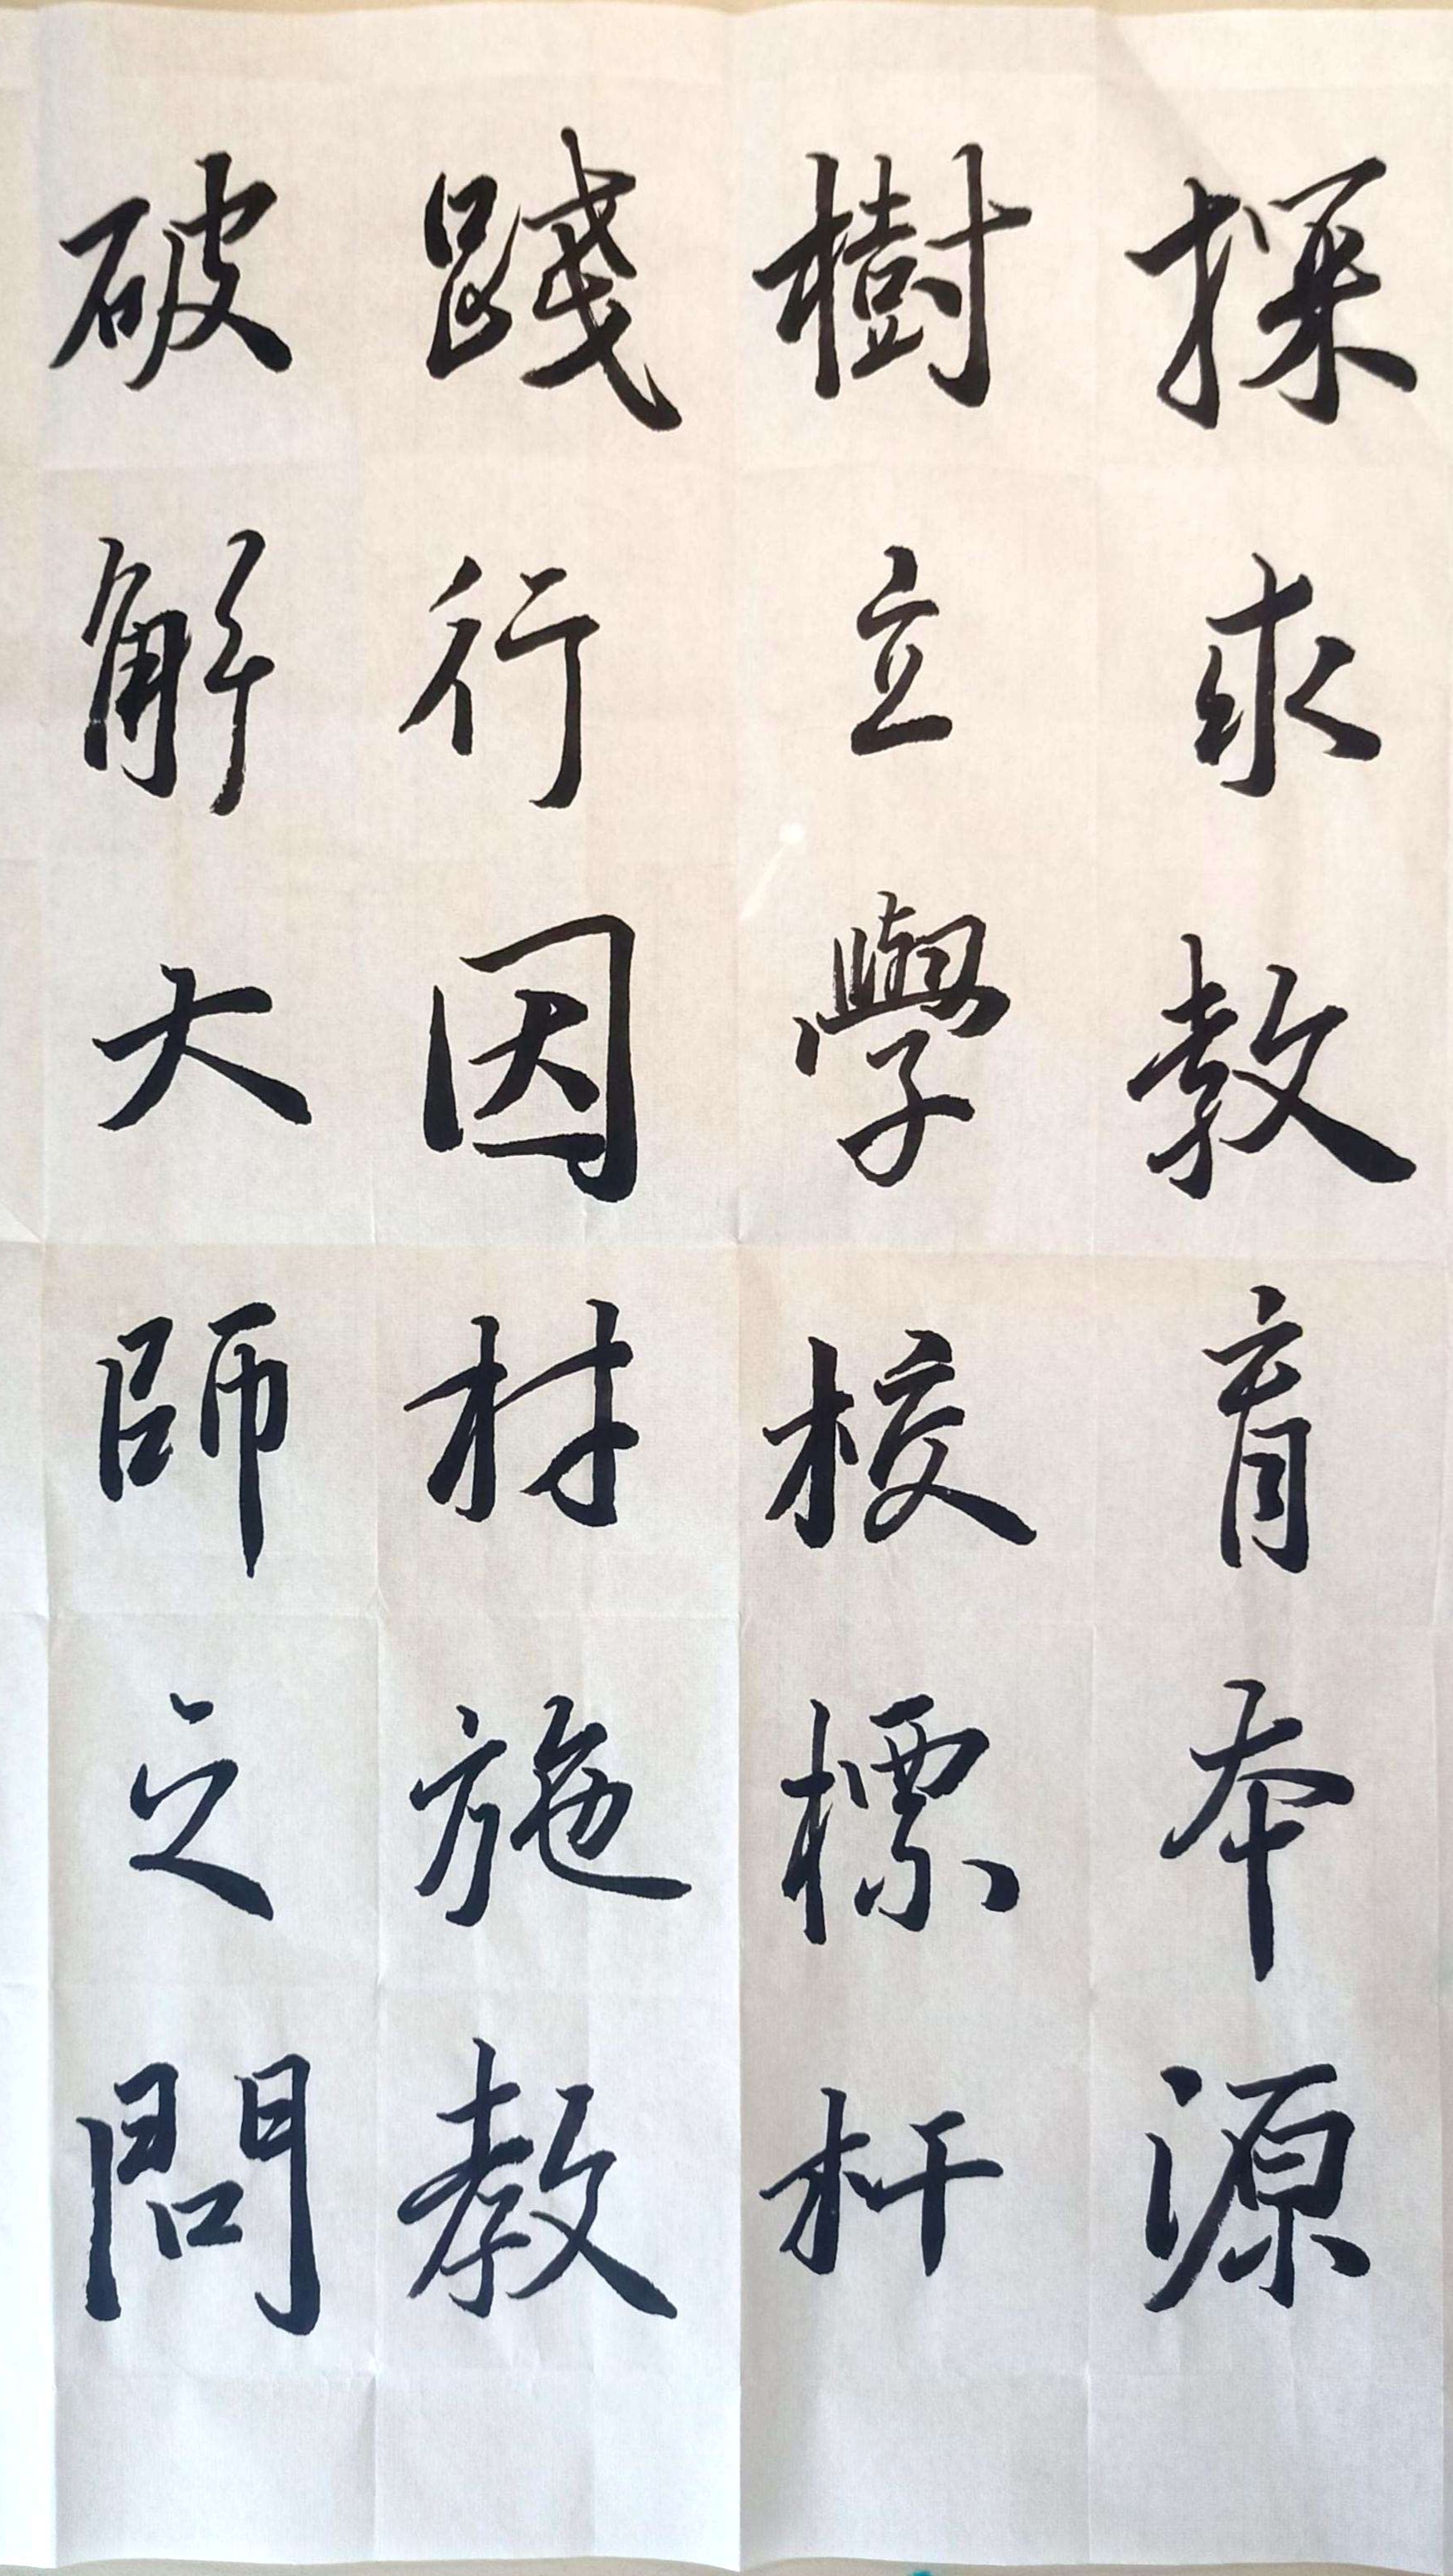 探求教育本源
樹立學校標杆
踐行因材施教
破解大師之問